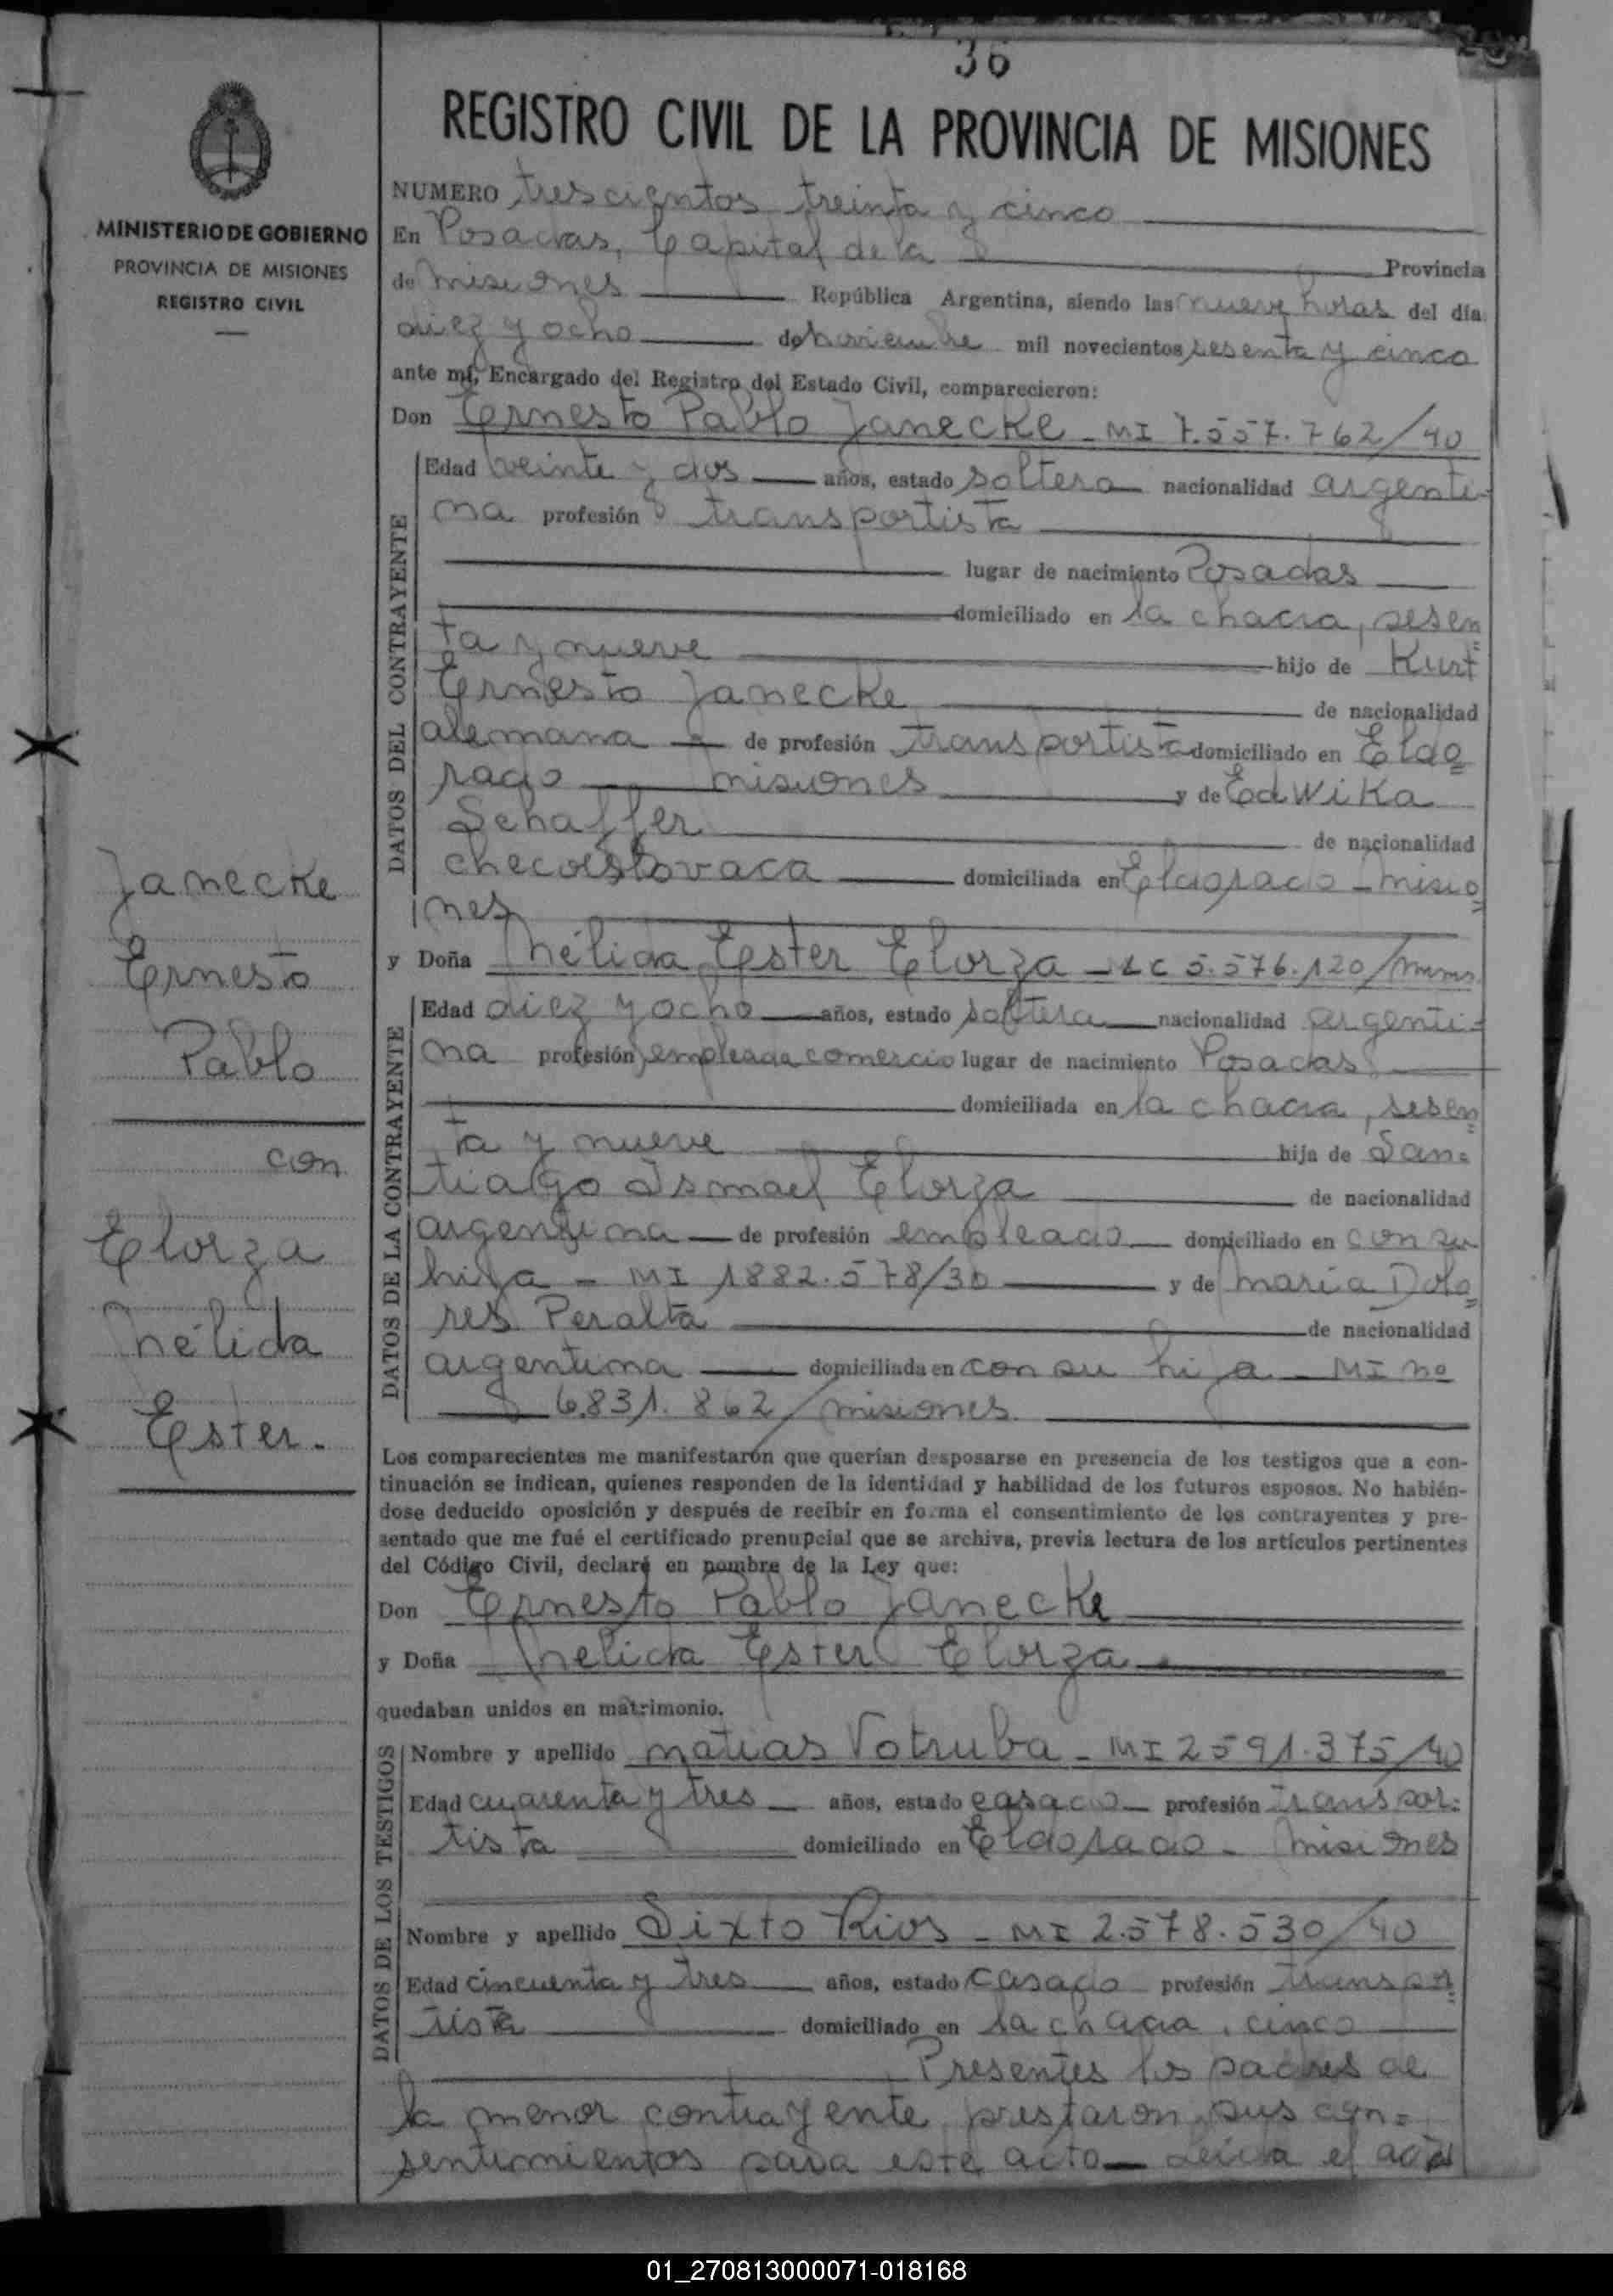 36
REGISTRO CIVIL DE LA PROVINCIA DE MISIONES
MINISTERIO DE GOBIERNO
PROVINCIA DE MISIONES
REGISTRO CIVIL
NUMERO trescientos treinta y cinco
En Posadas, Capital de la Provincia
de misiones República Argentina, siendo las nueve horas del día
diez y ocho de noviembre mil novecientos sesenta y cinco
ante mí, Encargado del Registro del Estado Civil, comparecieron:
Don Ernesto Pablo Janecke - MI 7.557.762/40
DATOS DEL CONTRAYENTE
Edad veinte y dos años, estado soltero nacionalidad argenti-
na profesión transportista
lugar de nacimiento Posadas
domiciliado en la chacra, sesen=
ta y nueve hijo de Kurt
Ernesto Janecke de nacionalidad
alemana de profesión transportista domiciliado en Eldo=
rado misiones y de Edwika
Schaffer de nacionalidad
checoeslovaca domiciliada en Eldorado - Misio=
nes
Janecke
Ernesto
Pablo
con
Elorza
Nélida
Ester.
y Doña Nélida Ester Elorza - LC 5.576.120/mnes.
DATOS DE LA CONTRAYENTE
Edad diez y ocho años, estado soltera nacionalidad argenti-
na profesión empleada comercio lugar de nacimiento Posadas
domiciliada en la chacra, sesen=
ta y nueve hija de San=
tiago Ismael Elorza de nacionalidad
argentina de profesión empleado domiciliado en con su
hija - MI 1882.578/30 y de María Dolo=
res Peralta de nacionalidad
argentina domiciliada en con su hija - MI no
6.831.862/misiones
Los comparecientes me manifestarón que querían desposarse en presencia de los testigos que a con-
tinuación se indican, quienes responden de la identidad y habilidad de los futuros esposos. No habién-
dose deducido oposición y después de recibir en forma el consentimiento de los contrayentes y pre-
sentado que me fué el certificado prenupcial que se archiva, previa lectura de los artículos pertinentes
del Código Civil, declaré en nombre de la Ley que:
Don Ernesto Pablo Janecke
y Doña Nelida Ester Elorza
quedaban unidos en matrimonio.
DATOS DE LOS TESTIGOS
Nombre y apellido Matias Votruba - MI 2591.375/40
Edad cuarenta y tres años, estado casado profesión transpor=
tista domiciliado en Eldorado - Misiones
Nombre y apellido Sixto Rios - MI 2.578.530/40
Edad cincuenta y tres años, estado casado profesión transpor=
tista domiciliado en la chacra, cinco
Presentes los padres de
la menor contrayente prestaron sus con=
sentimientos para este acto - Leida el acta
01_270813000071-018168